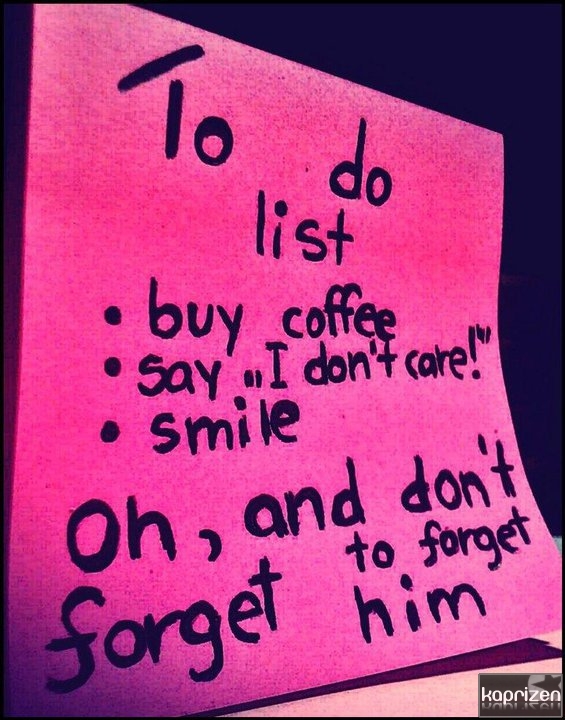 To do
list
• buy coffee
• say „I don't care!"
• smile
Oh, and don't
forget to forget
him
kaprizen